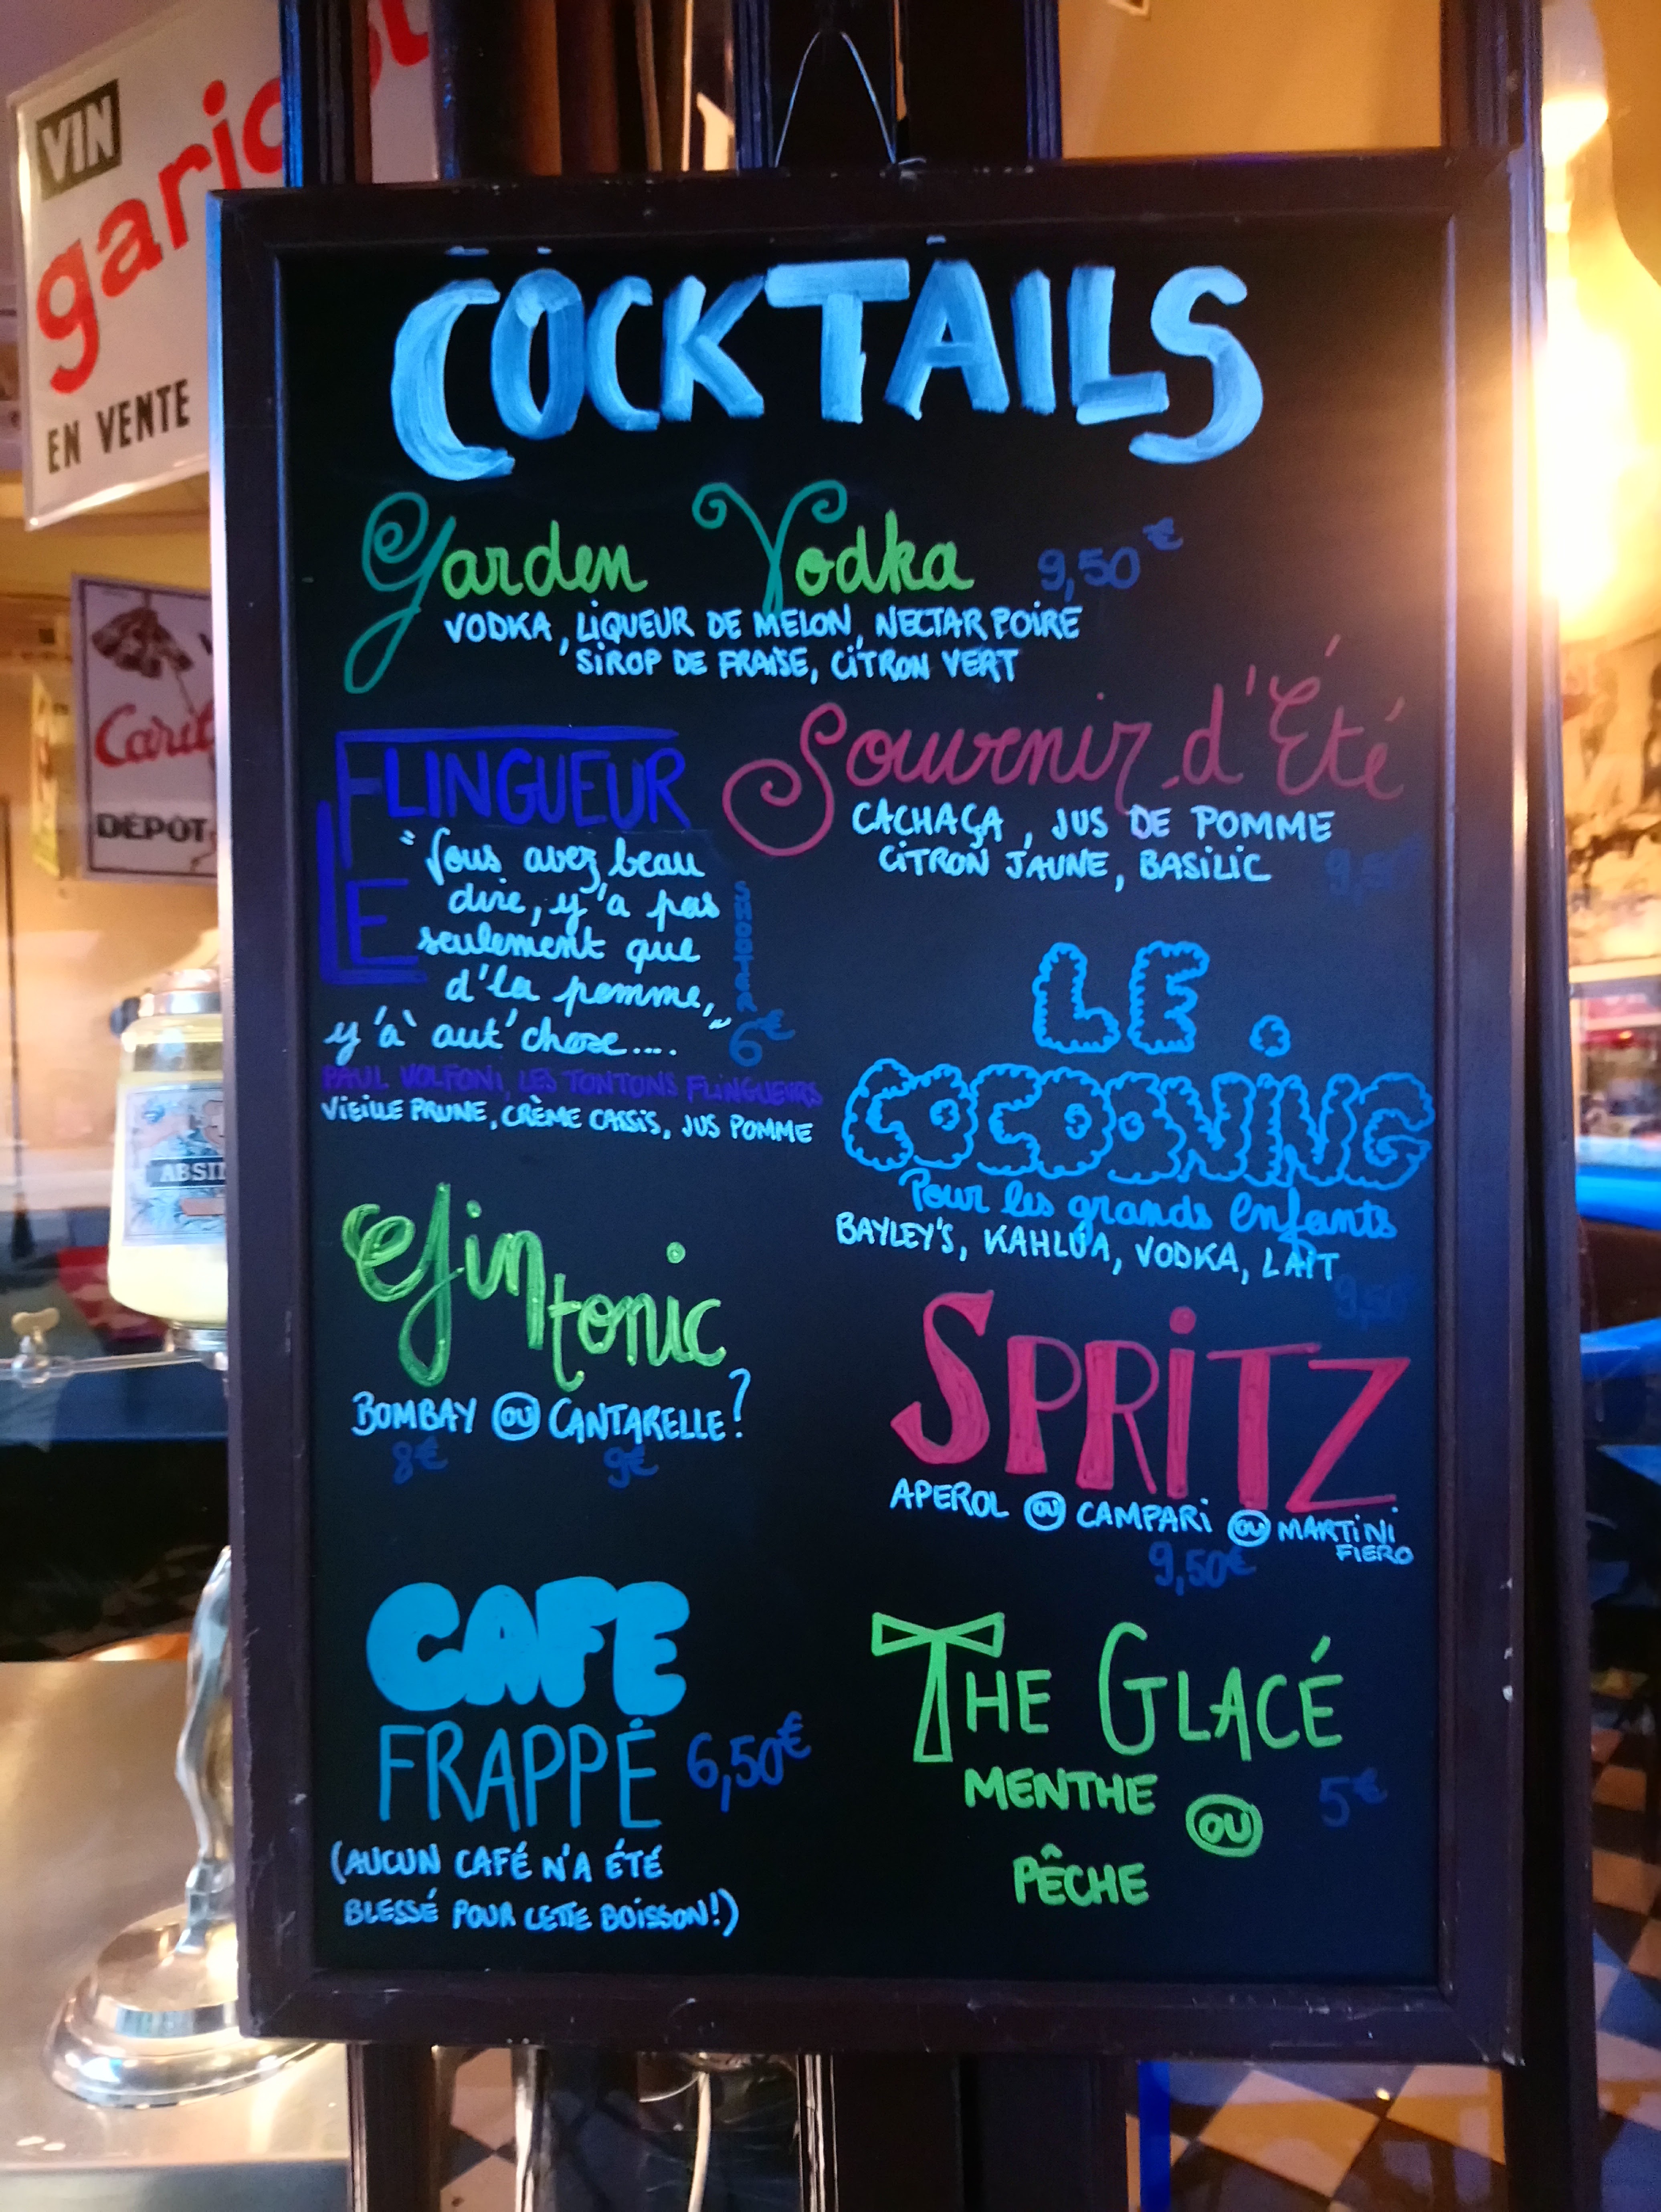 VIN
gariot
EN VENTE
DÉPOT
ABSI
COCKTAILS
Garden Vodka 9,50€
VODKA, LIQUEUR DE MELON, NECTAR POIRE
SIROP DE FRAISE, CITRON VERT
LE FLINGUEUR
"Vous avez beau
dire, y'a pas
seulement que
d'la pomme,
y'a aut'chose...."
SHOOTER
6€
PAUL VOLFONI, LES TONTONS FLINGUEURS
VIEILLE PRUNE, CRÈME CASSIS, JUS POMME
Souvenir d'Été
CACHAÇA, JUS DE POMME
CITRON JAUNE, BASILIC
9,50€
LE
COCOONING
Pour les grands enfants
BAYLEY'S, KAHLÚA, VODKA, LAIT
9,50€
Gin
tonic
BOMBAY OU CANTARELLE?
8€ 9€
SPRITZ
APEROL OU CAMPARI OU MARTINI
FIERO
9,50€
CAFE
FRAPPÉ 6,50€
(AUCUN CAFÉ N'A ÉTÉ
BLESSÉ POUR CETTE BOISSON!)
THE GLACÉ
MENTHE OU
PÊCHE
5€